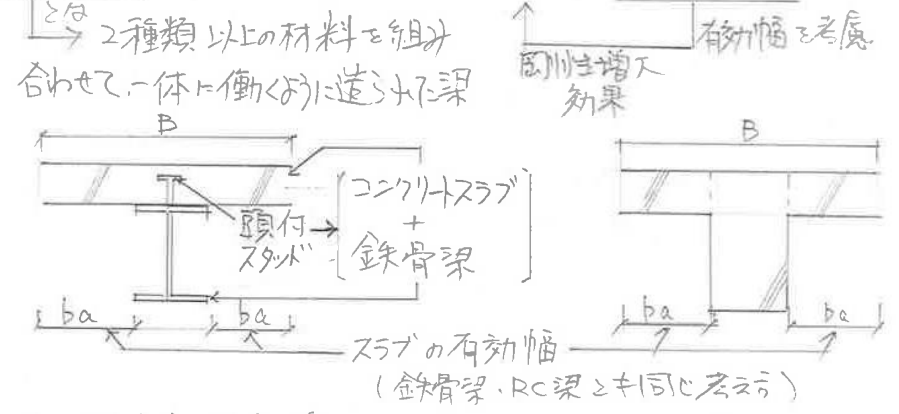 とは
2種類以上の材料を組み
合わせて、一体に働くように造られた梁
有効幅を考慮
剛性増大
効果
B
B
頭付
スタッド
コンクリートスラブ
+
鉄骨梁
ba
ba
ba
ba
スラブの有効幅
(鉄骨梁・RC梁とも同じ考え方)